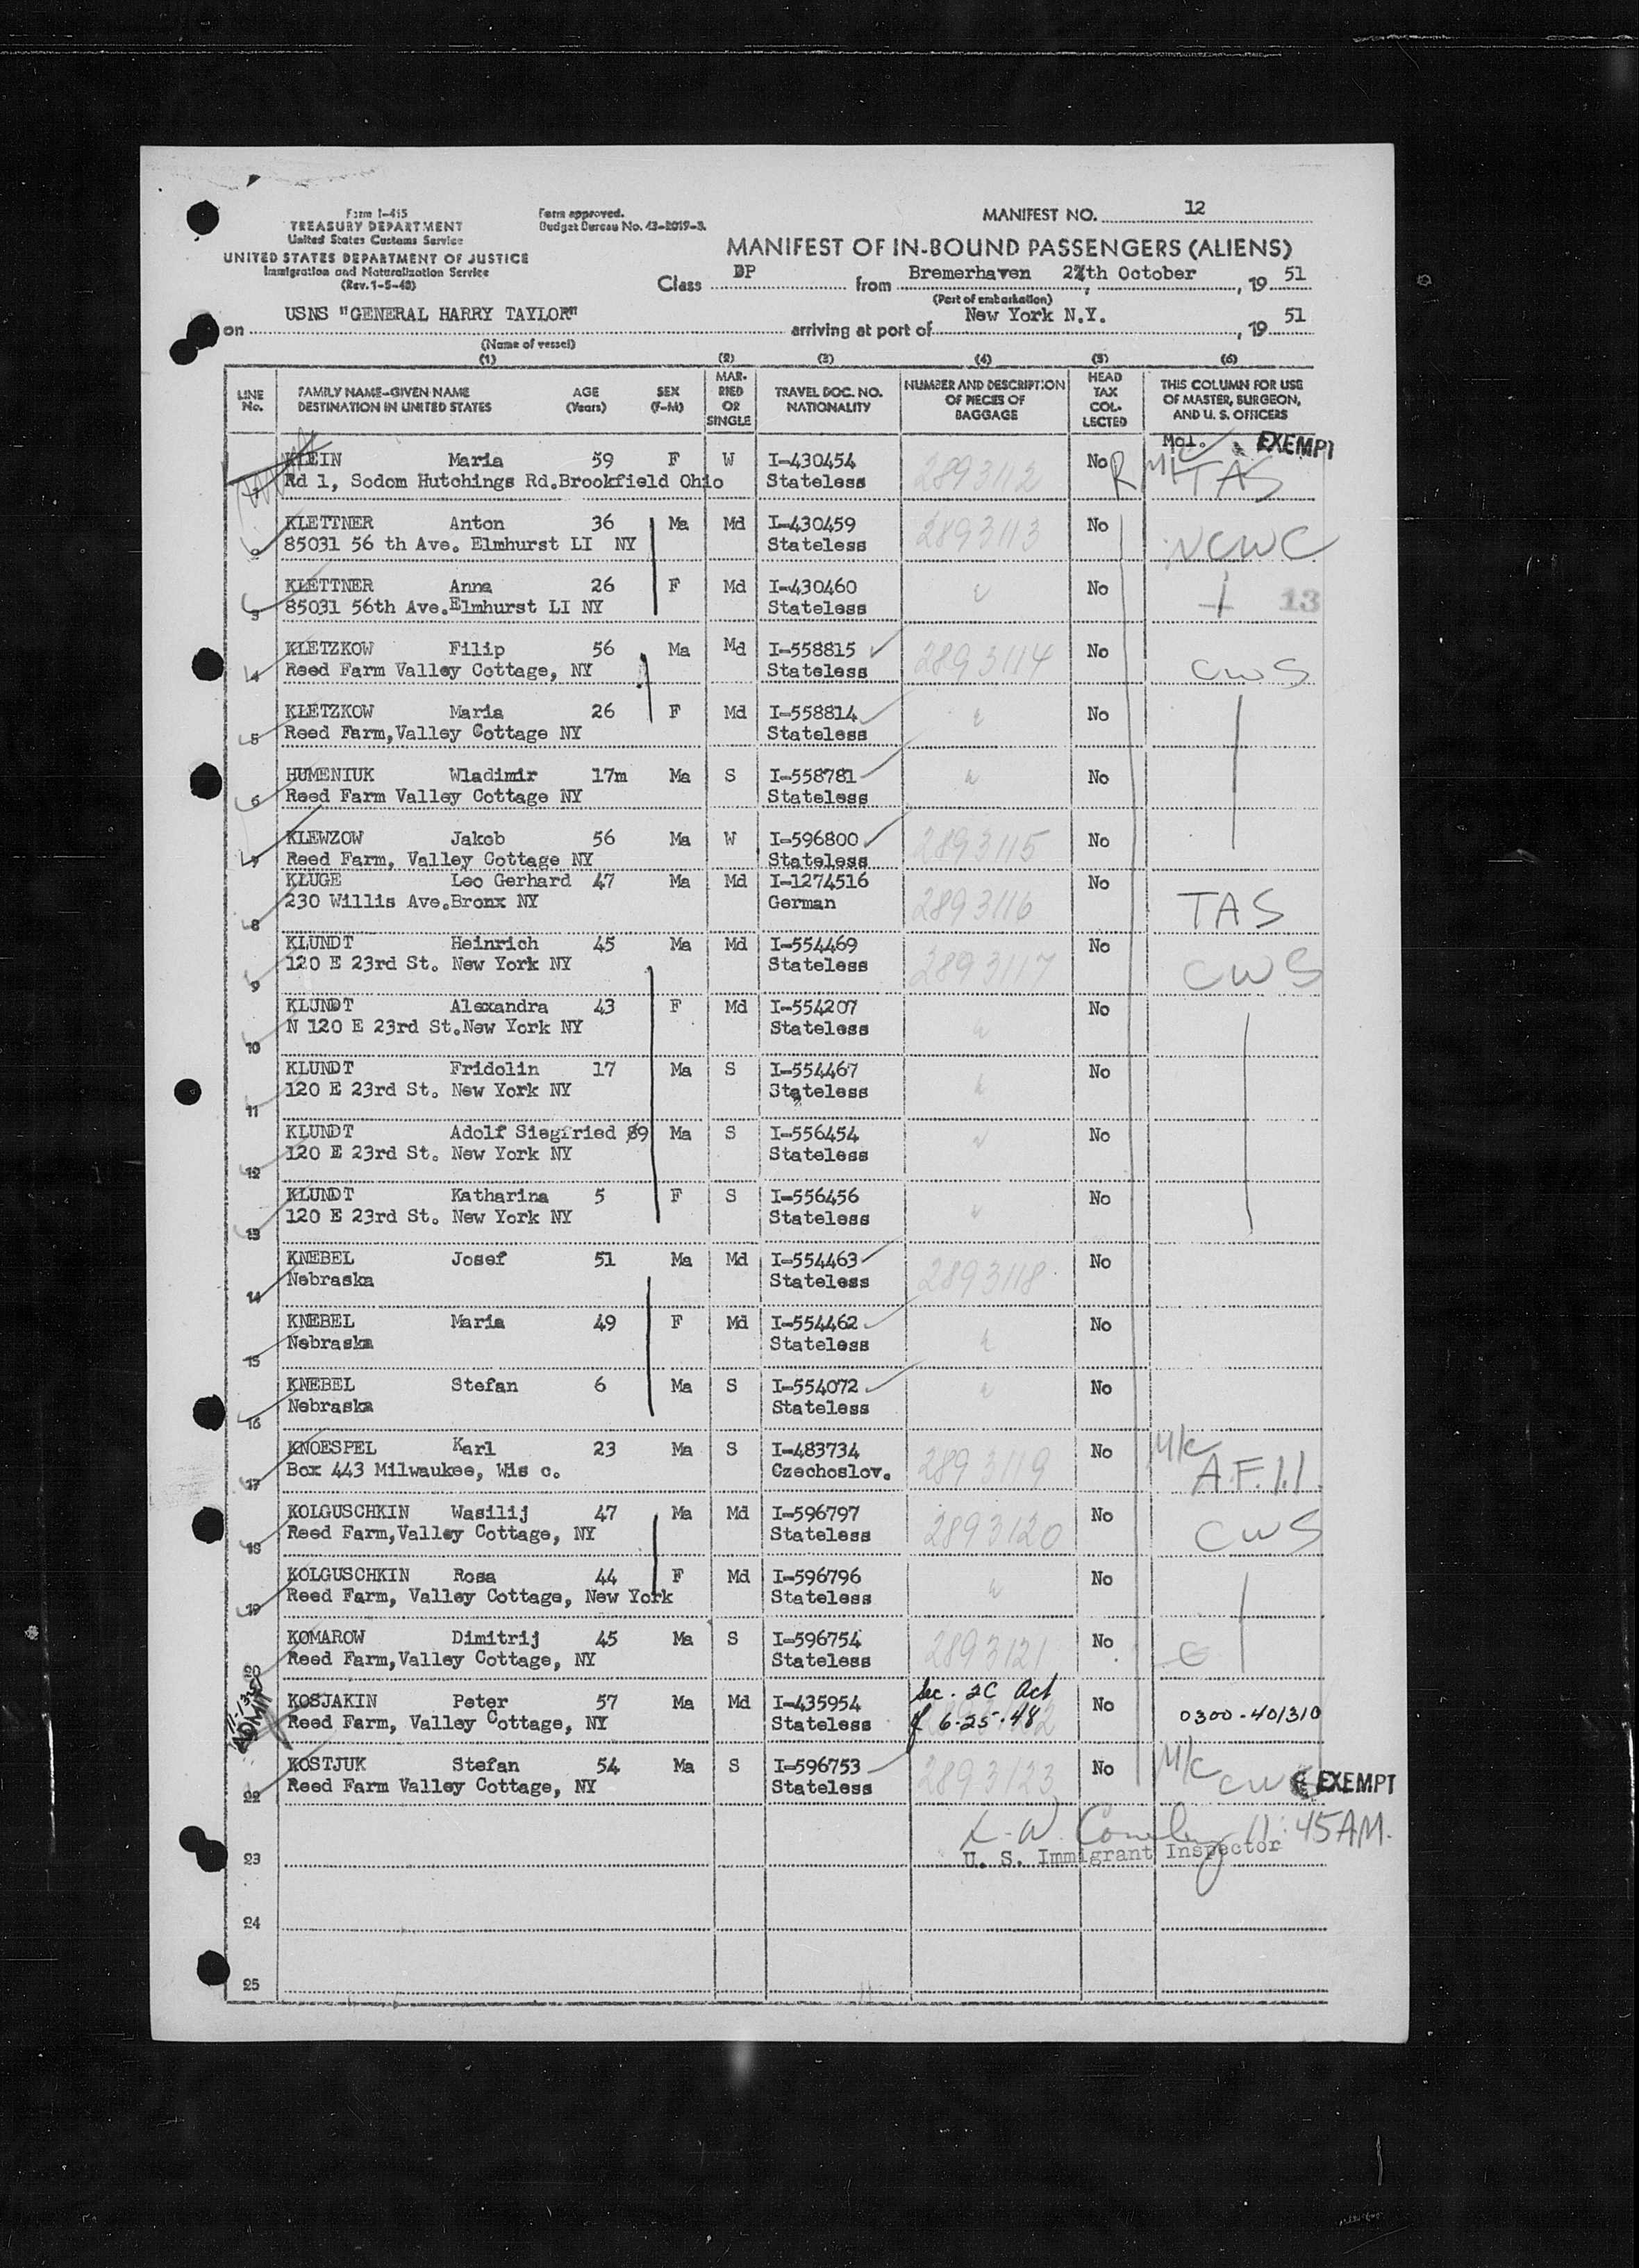 Form I-415
TREASURY DEPARTMENT
United States Customs Service
UNITED STATES DEPARTMENT OF JUSTICE
Immigration and Naturalization Service
(Rev. 1-5-48)
Form approved.
Budget Bureau No. 43-R019-3.
MANIFEST NO. 12
MANIFEST OF IN-BOUND PASSENGERS (ALIENS)
Class DP from Bremerhaven 27th October, 1951
(Port of embarkation)
on USNS "GENERAL HARRY TAYLOR" arriving at port of New York N.Y., 1951
(Name of vessel)
(1) (2) (3) (4) (5) (6)
LINE No. FAMILY NAME—GIVEN NAME DESTINATION IN UNITED STATES AGE (Years) SEX (F-M) MARRIED OR SINGLE TRAVEL DOC. NO. NATIONALITY NUMBER AND DESCRIPTION OF PIECES OF BAGGAGE HEAD TAX COLLECTED THIS COLUMN FOR USE OF MASTER, SURGEON, AND U. S. OFFICERS
KLEIN Maria 59 F W I-430454 2893112 No TAS EXEMPT
Rd 1, Sodom Hutchings Rd.Brookfield Ohio Stateless
2 KLETTNER Anton 36 Ma Md I-430459 2893113 No NCWC
85031 56 th Ave. Elmhurst LI NY Stateless
3 KLETTNER Anna 26 F Md I-430460 No 13
85031 56th Ave.Elmhurst LI NY Stateless
4 KLETZKOW Filip 56 Ma Md I-558815 2893114 No CWS
Reed Farm Valley Cottage, NY Stateless
5 KLETZKOW Maria 26 F Md I-558814 No
Reed Farm,Valley Cottage NY Stateless
6 HUMENIUK Wladimir 17m Ma S I-558781 No
Reed Farm Valley Cottage NY Stateless
7 KLEWZOW Jakob 56 Ma W I-596800 2893115 No
Reed Farm, Valley Cottage NY Stateless
8 KLUGE Leo Gerhard 47 Ma Md I-1274516 2893116 No TAS
230 Willis Ave.Bronx NY German
9 KLUNDT Heinrich 45 Ma Md I-554469 2893117 No CWS
120 E 23rd St. New York NY Stateless
10 KLUNDT Alexandra 43 F Md I-554207 No
N 120 E 23rd St.New York NY Stateless
11 KLUNDT Fridolin 17 Ma S I-554467 No
120 E 23rd St. New York NY Stateless
12 KLUNDT Adolf Siegfried 9 Ma S I-556454 No
120 E 23rd St. New York NY Stateless
13 KLUNDT Katharina 5 F S I-556456 No
120 E 23rd St. New York NY Stateless
14 KNEBEL Josef 51 Ma Md I-554463 2893118 No
Nebraska Stateless
15 KNEBEL Maria 49 F Md I-554462 No
Nebraska Stateless
16 KNEBEL Stefan 6 Ma S I-554072 No
Nebraska Stateless
17 KNOESPEL Karl 23 Ma S I-483734 2893119 No M/c A.F.I.I.
Box 443 Milwaukee, Wis c. Czechoslov.
18 KOLGUSCHKIN Wasilij 47 Ma Md I-596797 2893120 No CWS
Reed Farm,Valley Cottage, NY Stateless
19 KOLGUSCHKIN Rosa 44 F Md I-596796 No
Reed Farm, Valley Cottage, New York Stateless
20 KOMAROW Dimitrij 45 Ma S I-596754 2893121 No
Reed Farm,Valley Cottage, NY Stateless
ADMIT KOSJAKIN Peter 57 Ma Md I-435954 Sec. 2C Act No 0300-401310
Reed Farm, Valley Cottage, NY Stateless of 6-25-48
22 KOSTJUK Stefan 54 Ma S I-596753 2893123 No M/c CWS EXEMPT
Reed Farm Valley Cottage, NY Stateless
11:45 AM.
23 U. S. Immigrant Inspector
24
25